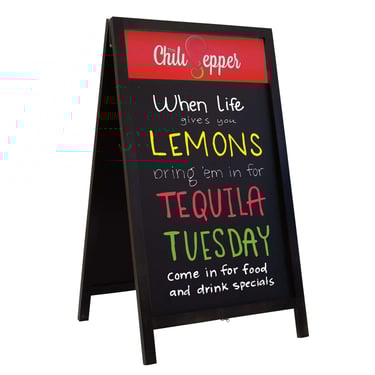 The
Chili Pepper
When Life
gives you
LEMONS
bring 'em in for
TEQUILA
TUESDAY
come in for food
and drink specials